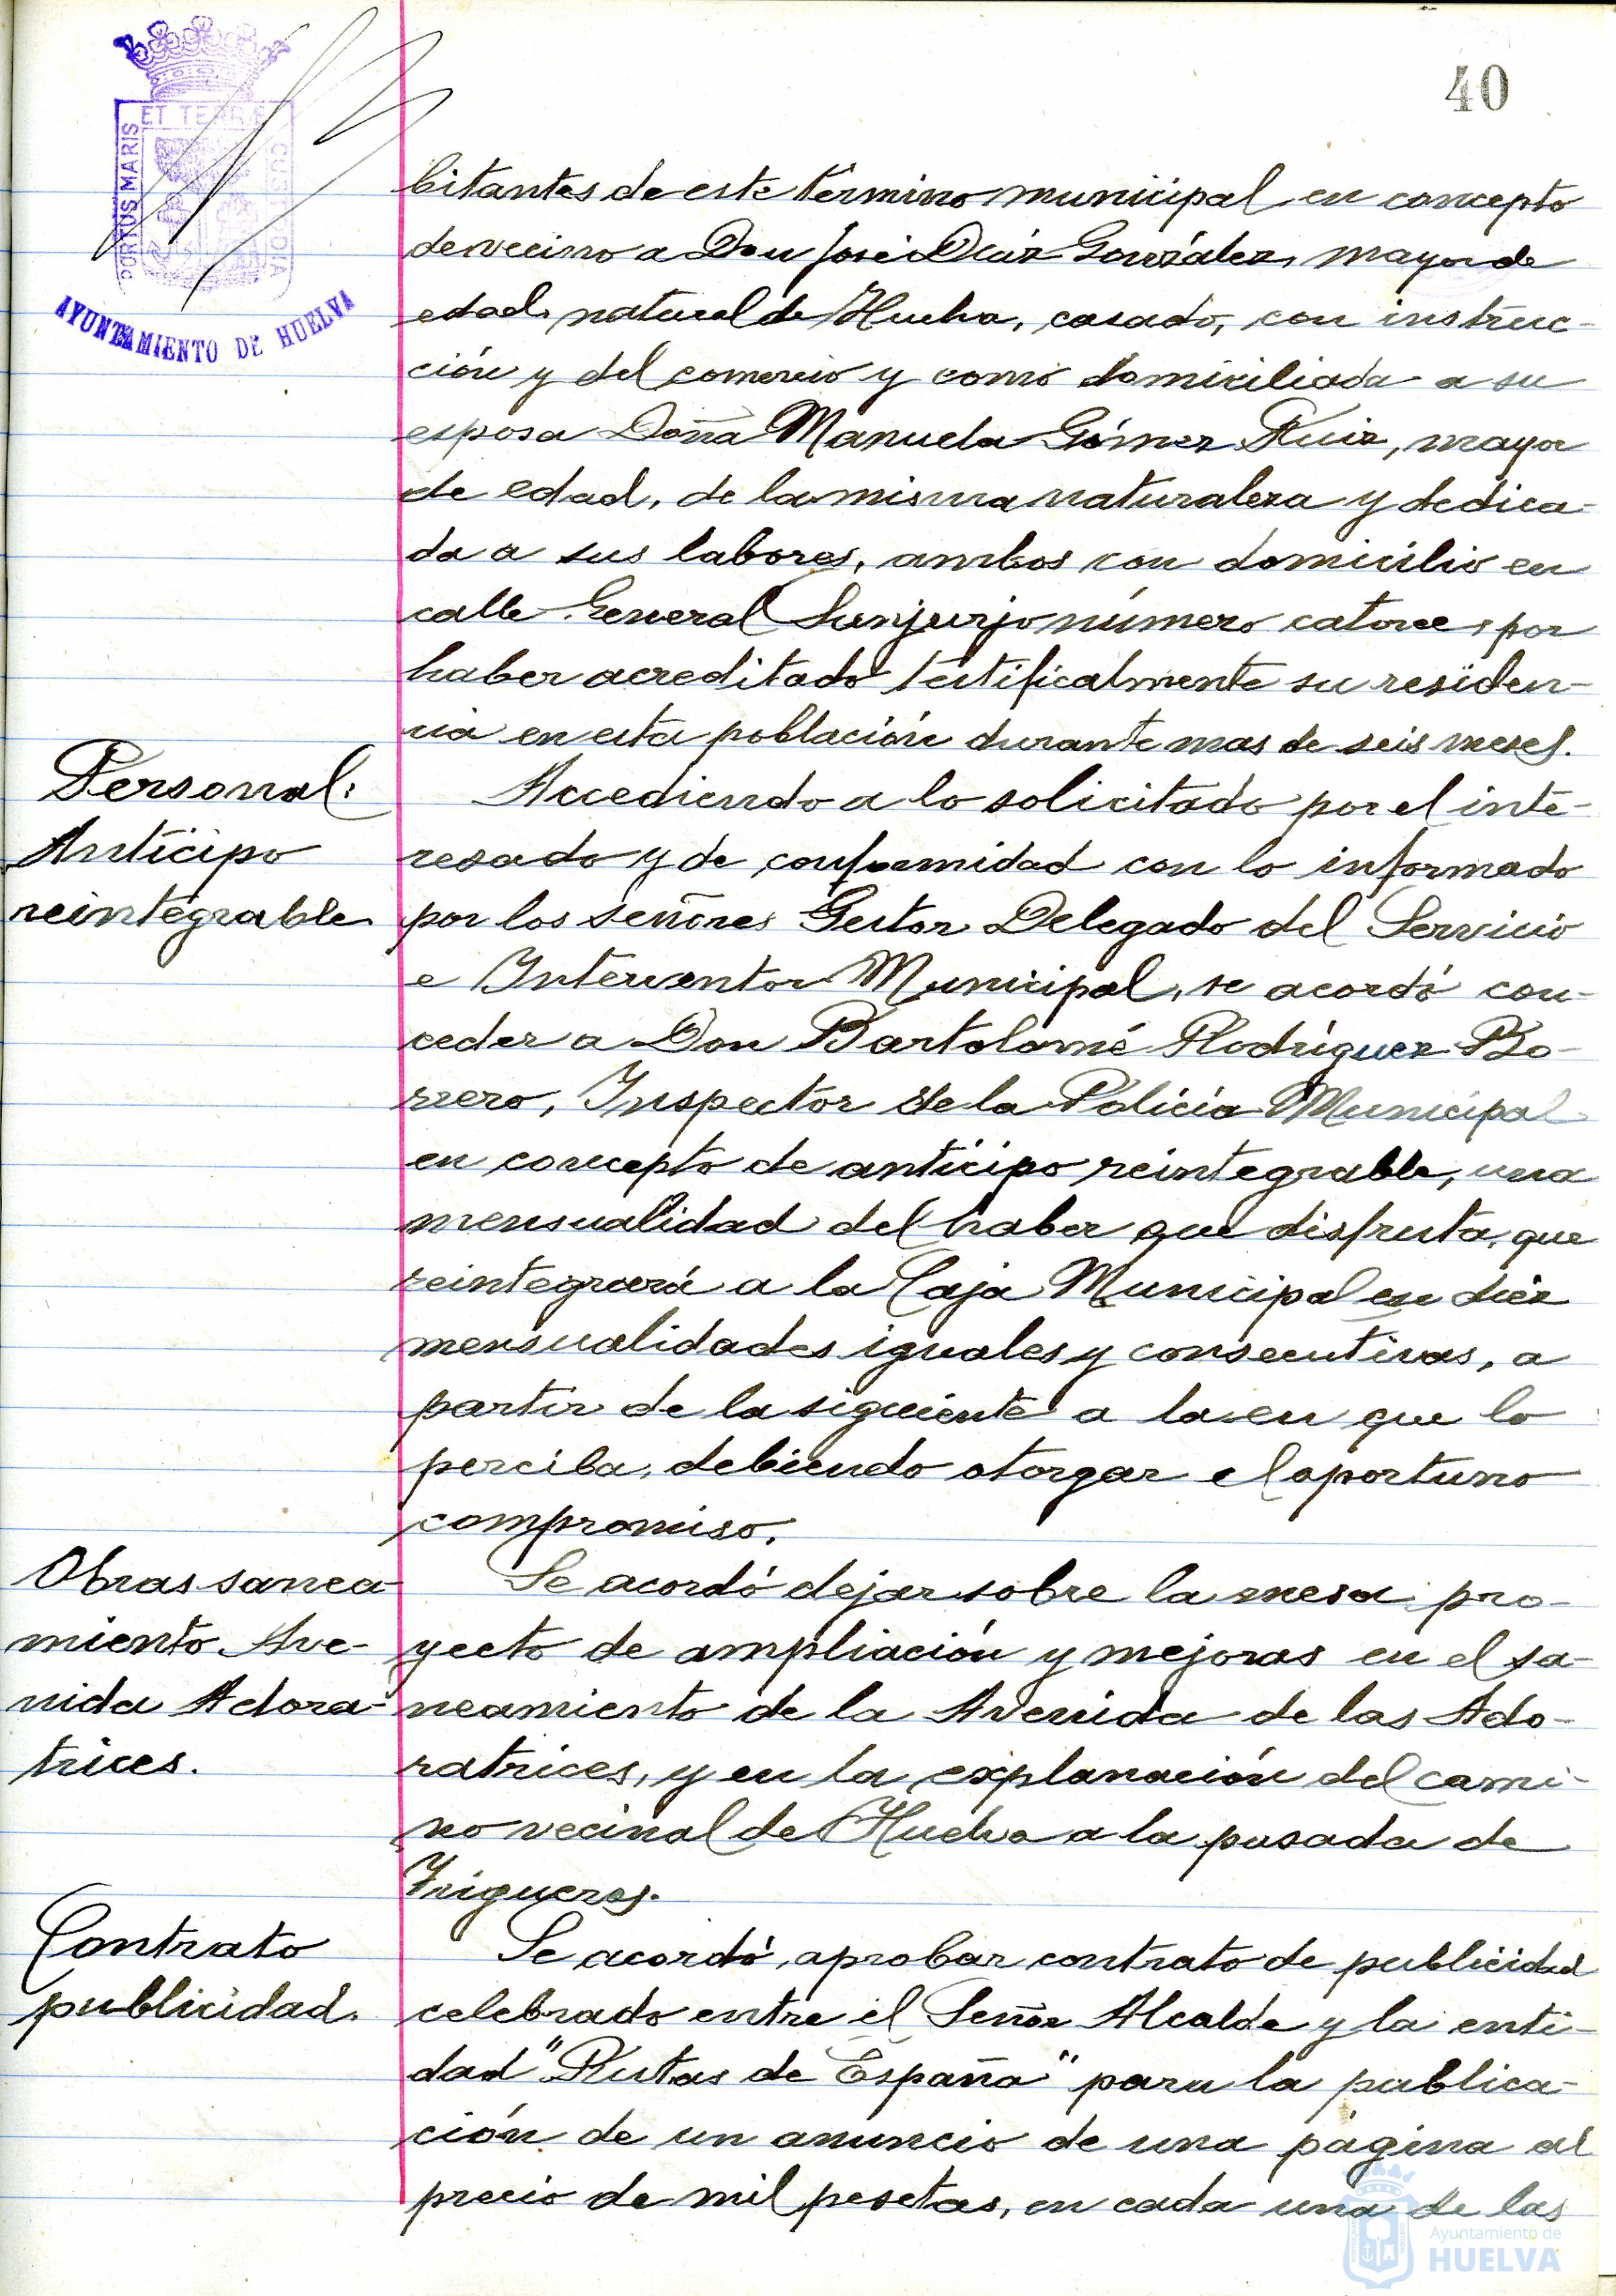 40
ET TERRÆ
PORTUS MARIS
CUSTODIA
AYUNTAMIENTO DE HUELVA
bitantes de este término municipal en concepto
de vecino a Don José Díaz González, mayor de
edad, natural de Huelva, casado, con instruc-
ción y del comercio y como domiciliada a su
esposa Doña Manuela Gómez Ruiz, mayor
de edad, de la misma naturaleza y dedica-
da a sus labores, ambos con domicilio en
calle General Sanjurjo número catorce, por
haber acreditado testificalmente su residen-
cia en esta población durante mas de seis meses.
Personal:
Anticipo
reintegrable.
Accediendo a lo solicitado por el inte-
resado y de conformidad con lo informado
por los señores Gestor Delegado del Servicio
e Interventor Municipal, se acordó con-
ceder a Don Bartolomé Rodríguez Bo-
rrero, Inspector de la Policía Municipal
en concepto de anticipo reintegrable, una
mensualidad del haber que disfruta, que
reintegrará a la Caja Municipal en diez
mensualidades iguales y consecutivas, a
partir de la siguiente a la en que lo
perciba, debiendo otorgar el oportuno
compromiso.
Obras sanea-
miento Ave-
nida Adora-
trices.
Se acordó dejar sobre la mesa pro-
yecto de ampliación y mejoras en el sa-
neamiento de la Avenida de las Ado-
ratrices, y en la explanación del cami-
no vecinal de Huelva a la pasada de
Trigueros.
Contrato
publicidad.
Se acordó, aprobar contrato de publicidad
celebrado entre el Señor Alcalde y la enti-
dad "Rutas de España" para la publica-
ción de un anuncio de una página al
precio de mil pesetas, en cada una de las
Ayuntamiento de
HUELVA